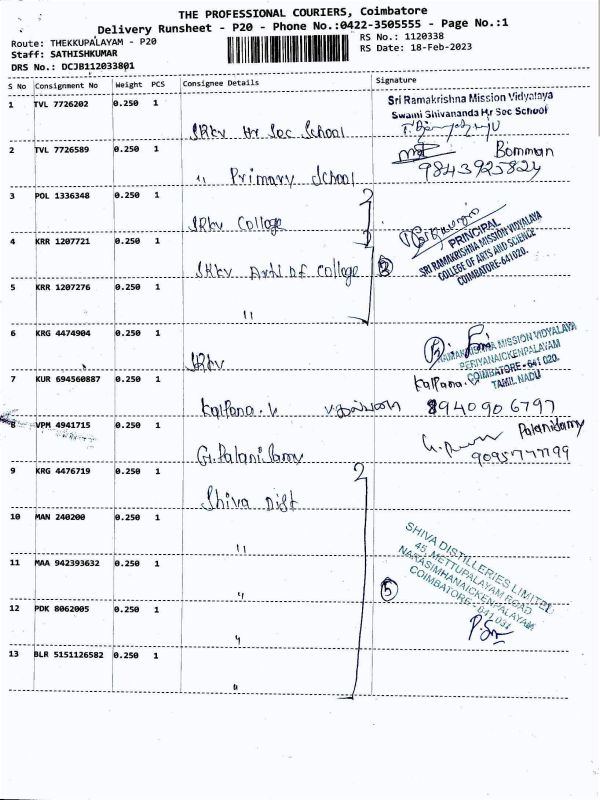 THE PROFESSIONAL COURIERS, Coimbatore
Delivery Runsheet - P20 - Phone No.:0422-3505555 - Page No.:1
Route: THEKKUPALAYAM - P20
RS No.: 1120338
Staff: SATHISHKUMAR
RS Date: 18-Feb-2023
DRS No.: DCJB112033801
S No Consignment No Weight PCS Consignee Details Signature
1 TVL 7726202 0.250 1
Sri Ramakrishna Mission Vidyalaya
Swami Shivananda Hr Sec School
SRKV Hr Sec School
2 TVL 7726589 0.250 1
Bomman
9843925824
" Primary School
3 POL 1336348 0.250 1
SRKV College
4 KRR 1207721 0.250 1
PRINCIPAL
SRI RAMAKRISHNA MISSION VIDYALAYA
COLLEGE OF ARTS AND SCIENCE
COIMBATORE-641020.
SRKV Arts of College
3
5 KRR 1207276 0.250 1
"
6 KRG 4474904 0.250 1
RAMAKRISHNA MISSION VIDYALAYA
PERIYANAICKENPALAYAM
COIMBATORE - 641 020.
TAMIL NADU
SRKV
7 KUR 694560887 0.250 1
Kalpana. V
Kalpana. V 8940906797
8 VPM 4941715 0.250 1
Palanisamy
9095777799
G. Palanisamy
9 KRG 4476719 0.250 1
Shiva Dist
10 MAN 240200 0.250 1
"
SHIVA DISTILLERIES LIMITED
45, METTUPALAYAM ROAD
NARASIMHANAICKENPALAYAM
COIMBATORE - 641 031
11 MAA 942393632 0.250 1
"
5
12 PDK 8062005 0.250 1
"
13 BLR 5151126582 0.250 1
"